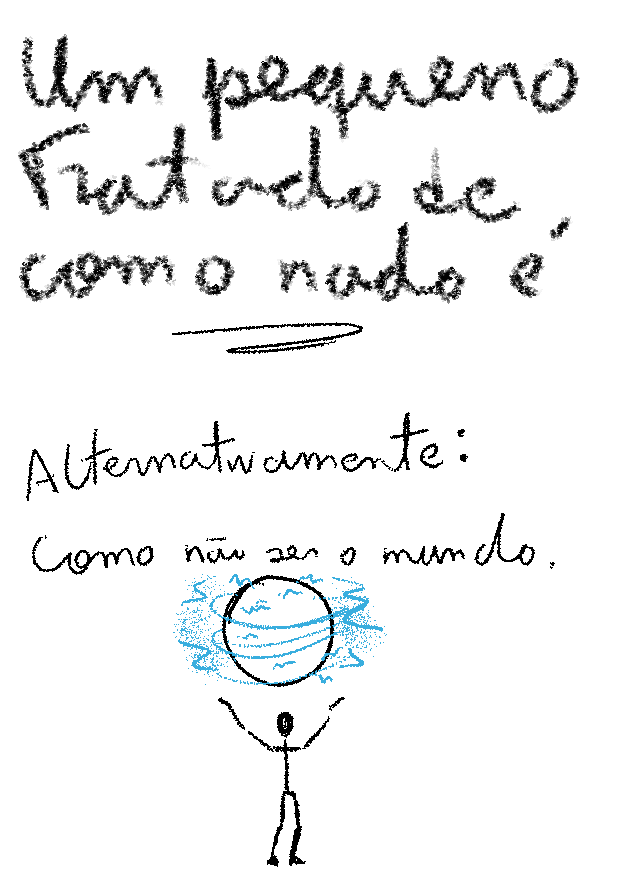 Um pequeno
Tratado de
como o nado é
Alternativamente:
Como não ser o mundo.